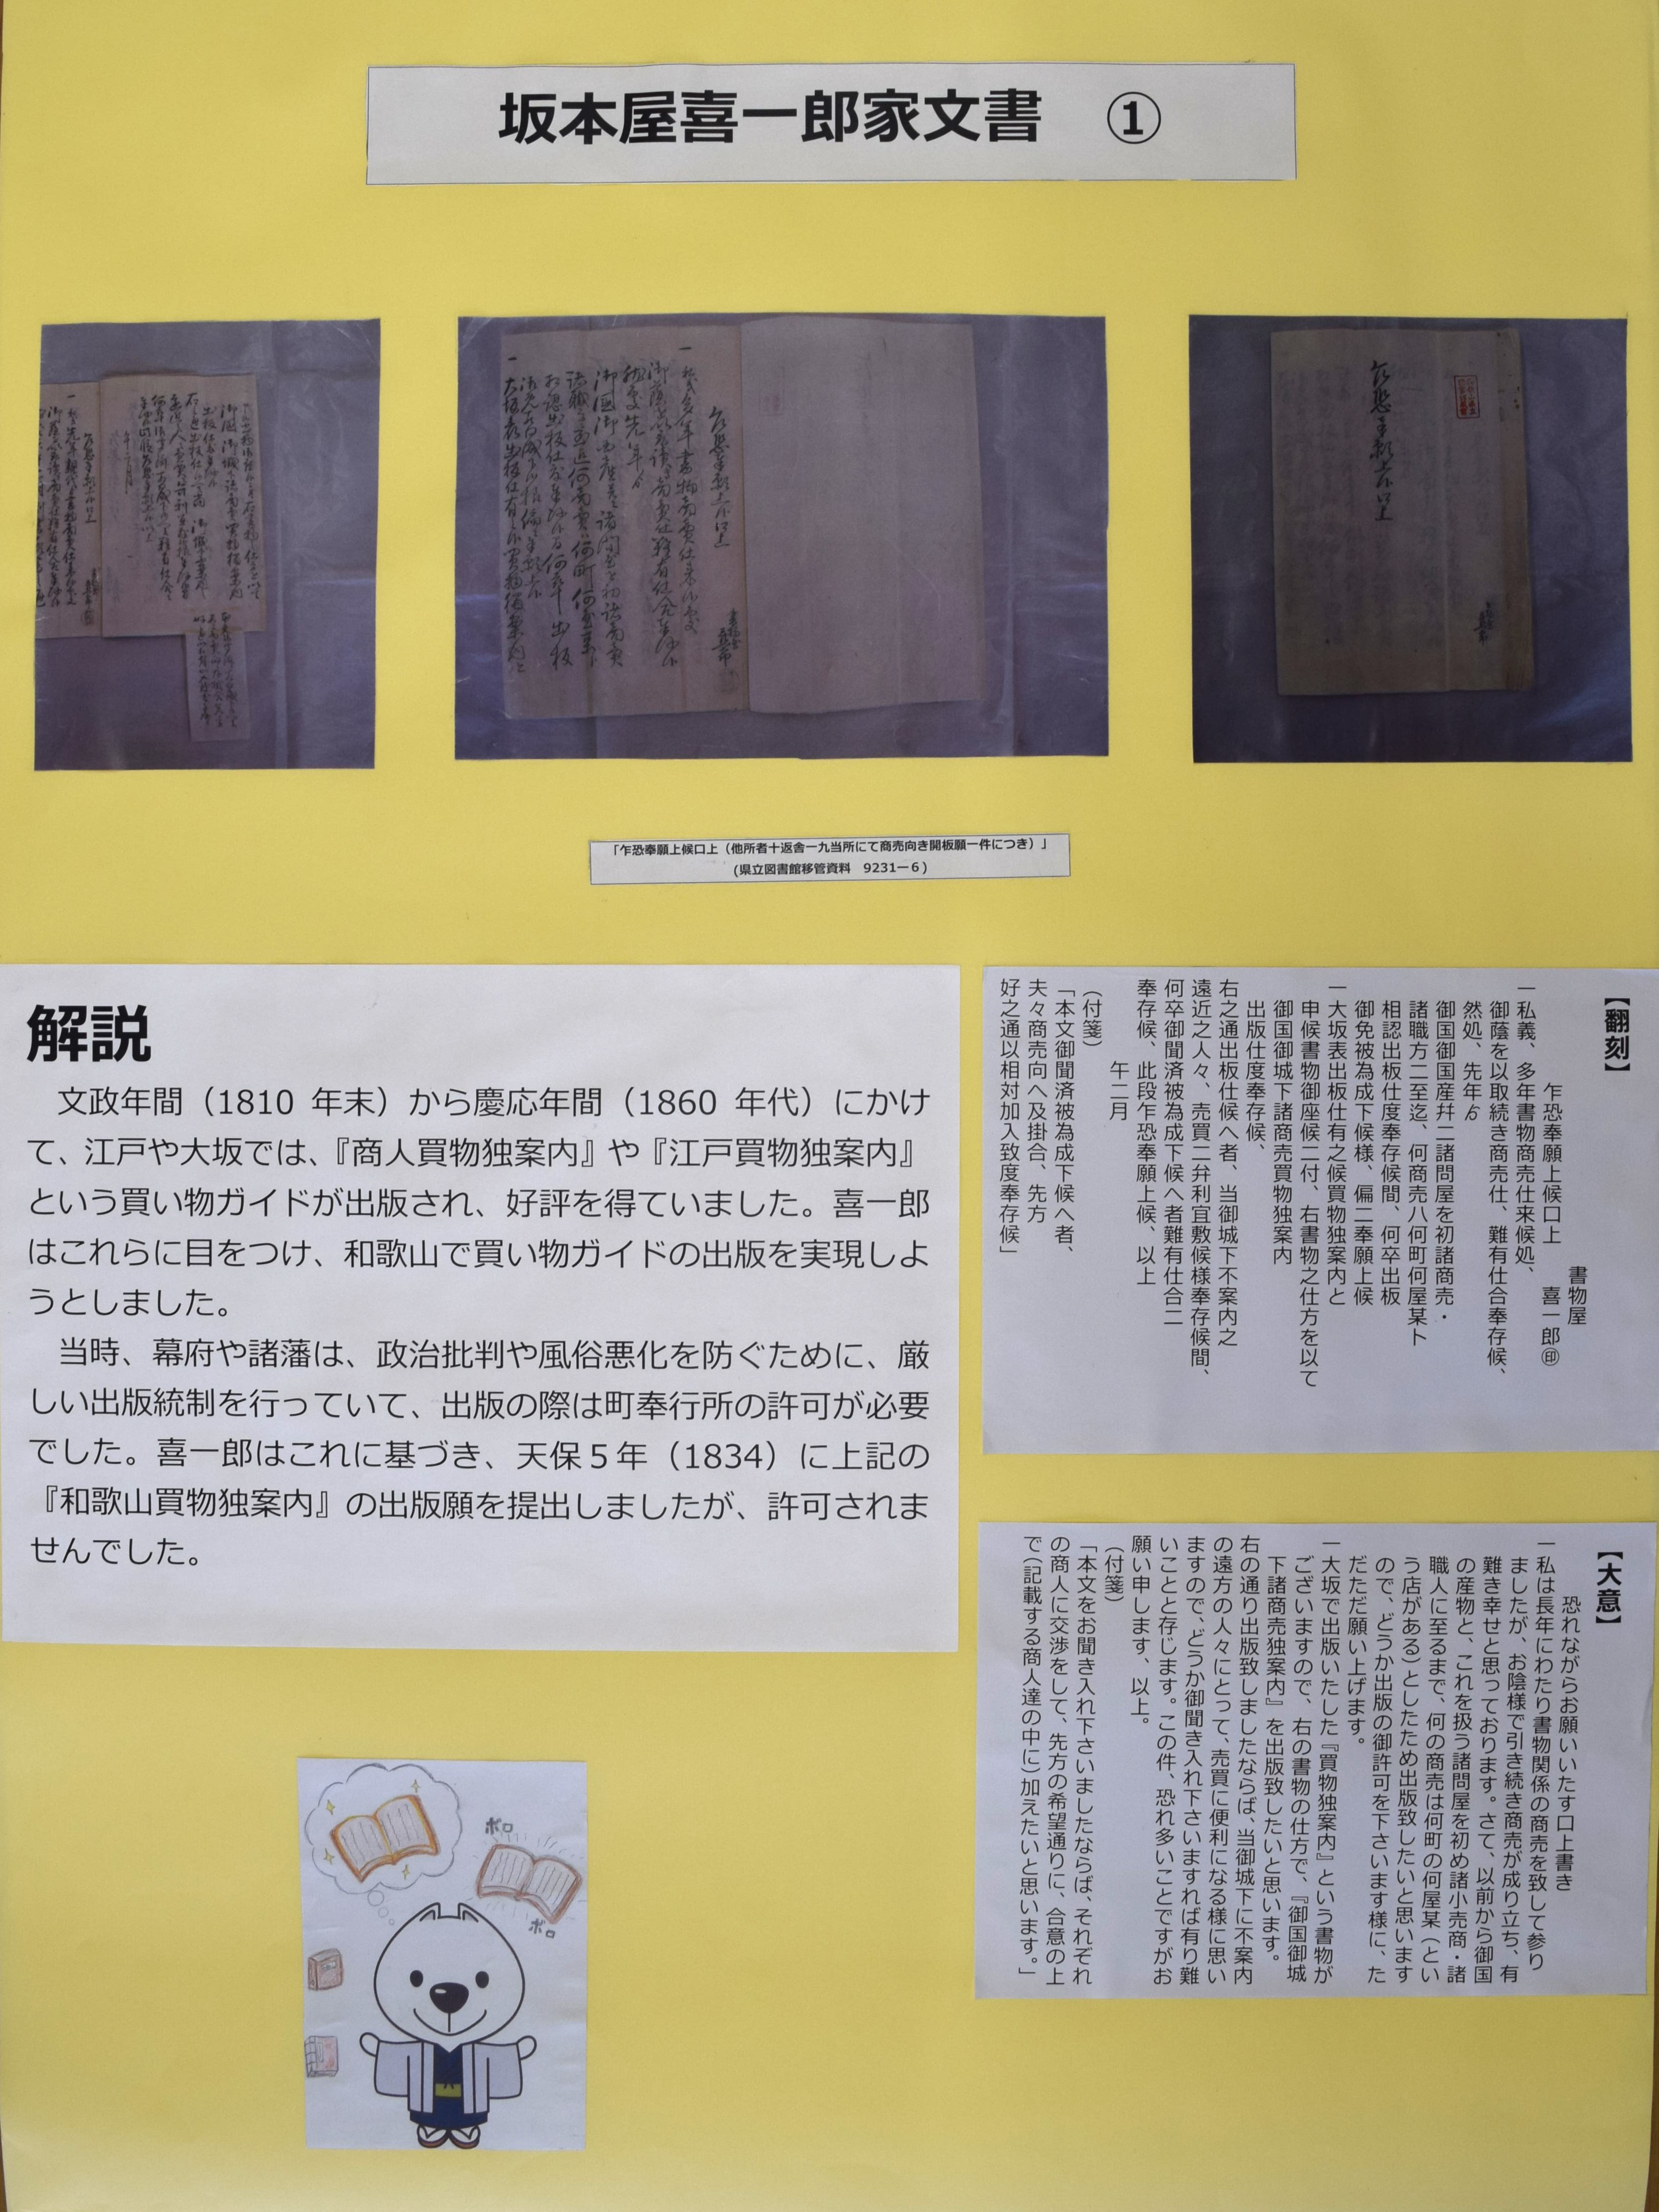 坂本屋喜一郎家文書　①
「乍恐奉願上候口上（他所者十返舎一九当所にて商売向き開板願一件につき）」
(県立図書館移管資料　9231－6)
【翻刻】
乍恐奉願上候口上
書物屋
喜一郎㊞
一私義、多年書物商売仕来候処、
御蔭を以取続き商売仕、難有仕合奉存候、
然処、先年ゟ
御国御国産幷ニ諸問屋を初諸商売・
諸職方ニ至迄、何商売ハ何町何屋某ト
相認出板仕度奉存候間、何卒出板
御免被為成下候様、偏ニ奉願上候
一大坂表出板仕有之候買物独案内と
申候書物御座候ニ付、右書物之仕方を以て
御国御城下諸商売買物独案内
出版仕度奉存候、
右之通出板仕候へ者、当御城下不案内之
遠近之人々、売買ニ弁利宜敷候様奉存候間、
何卒御聞済被為成下候へ者難有仕合ニ
奉存候、此段乍恐奉願上候、以上
午二月
（付箋）
「本文御聞済被為成下候へ者、
夫々商売向へ及掛合、先方
好之通以相対加入致度奉存候」
解説
文政年間（1810 年末）から慶応年間（1860 年代）にかけ
て、江戸や大坂では、『商人買物独案内』や『江戸買物独案内』
という買い物ガイドが出版され、好評を得ていました。喜一郎
はこれらに目をつけ、和歌山で買い物ガイドの出版を実現しよ
うとしました。
当時、幕府や諸藩は、政治批判や風俗悪化を防ぐために、厳
しい出版統制を行っていて、出版の際は町奉行所の許可が必要
でした。喜一郎はこれに基づき、天保５年（1834）に上記の
『和歌山買物独案内』の出版願を提出しましたが、許可されま
せんでした。
【大意】
恐れながらお願いいたす口上書き
一私は長年にわたり書物関係の商売を致して参り
ましたが、お陰様で引き続き商売が成り立ち、有
難き幸せと思っております。さて、以前から御国
の産物と、これを扱う諸問屋を初め諸小売商・諸
職人に至るまで、何の商売は何町の何屋某（とい
う店がある）としたため出版致したいと思います
ので、どうか出版の御許可を下さいます様に、た
だただ願い上げます。
一大坂で出版いたした『買物独案内』という書物が
ございますので、右の書物の仕方で、『御国御城
下諸商売独案内』を出版致したいと思います。
右の通り出版致しましたならば、当御城下に不案内
の遠方の人々にとって、売買に便利になる様に思い
ますので、どうか御聞き入れ下さいますれば有り難
いことと存じます。この件、恐れ多いことですがお
願い申します、以上。
（付箋）
「本文をお聞き入れ下さいましたならば、それぞれ
の商人に交渉をして、先方の希望通りに、合意の上
で（記載する商人達の中に）加えたいと思います。」
ボロ
ボロ